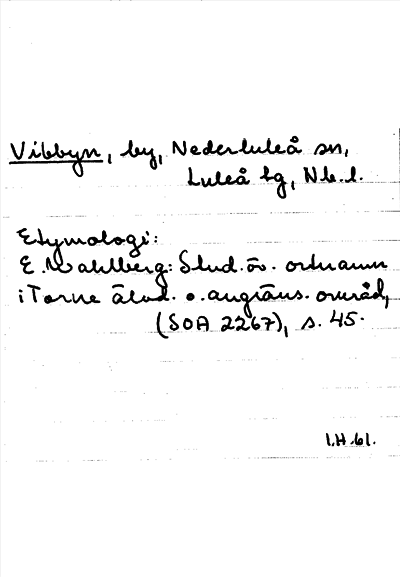 Vibbyn, by, Nederluleå sn,
Luleå tg, Nb. l.
Etymologi:
E. Wahlberg: Stud. öv. ortnamn
i Torne älvd. o. angräns. område,
(SOA 2267), s. 45.
I.H. 61.